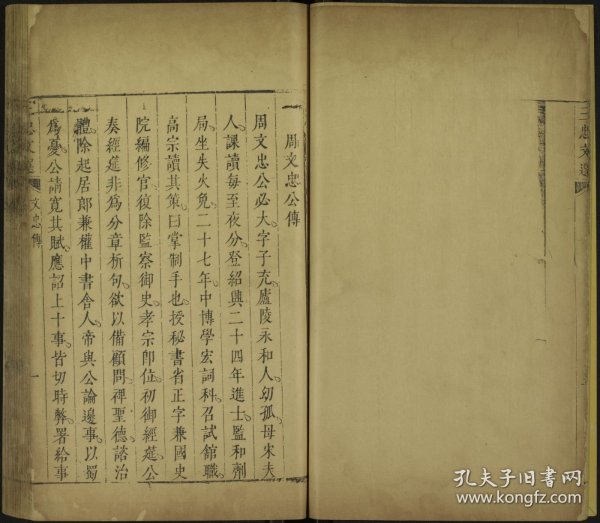 三忠文選
周文忠公傳
周文忠公必大字子充廬陵永和人幼孤母朱夫
人課讀每至夜分登紹興二十四年進士監和劑
局坐失火免二十七年中博學宏詞科召試館職
高宗讀其策曰掌制手也授秘書省正字兼國史
院編修官復除監察御史孝宗卽位初御經筵公
奏經筵非爲分章析句欲以備顧問禆聖德諮治
體除起居郎兼權中書舍人帝與公論邊事以蜀
爲憂公請寬其賦應詔上十事皆切時弊署給事
三忠文選
文忠傳
一
孔夫子旧书网
www.kongfz.com